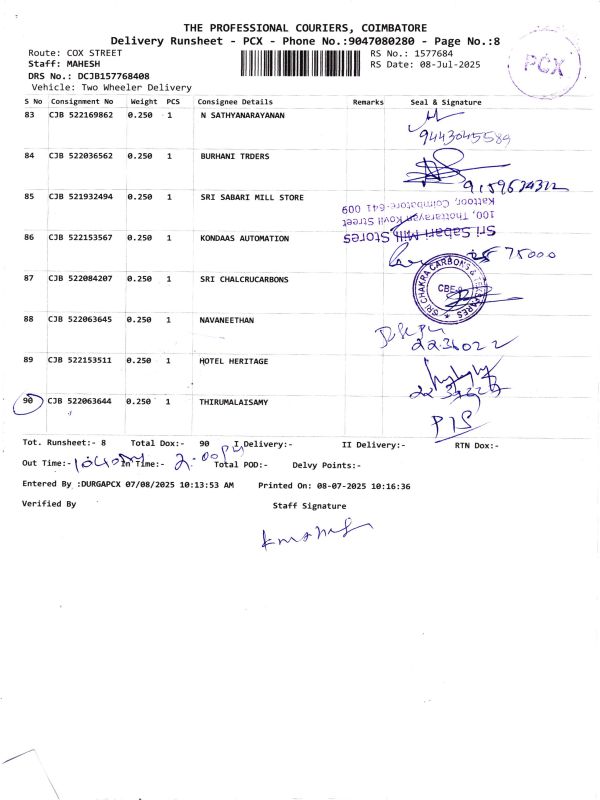 THE PROFESSIONAL COURIERS, COIMBATORE
Delivery Runsheet - PCX - Phone No.:9047080280 - Page No.:8
Route: COX STREET
RS No.: 1577684
Staff: MAHESH
RS Date: 08-Jul-2025
PCX
DRS No.: DCJB157768408
Vehicle: Two Wheeler Delivery
S No Consignment No Weight PCS Consignee Details Remarks Seal & Signature
83 CJB 522169862 0.250 1 N SATHYANARAYANAN
9443045589
84 CJB 522036562 0.250 1 BURHANI TRDERS
85 CJB 521932494 0.250 1 SRI SABARI MILL STORE
Sri Sabari Mill Stores
100, Thottarayan Kovil Street
Kattoor, Coimbatore-641 009
86 CJB 522153567 0.250 1 KONDAAS AUTOMATION
75000
87 CJB 522084207 0.250 1 SRI CHALCRUCARBONS
SRI CHAKRA CARBONS &
88 CJB 522063645 0.250 1 NAVANEETHAN
89 CJB 522153511 0.250 1 HOTEL HERITAGE
90 CJB 522063644 0.250 1 THIRUMALAISAMY
P/S
Tot. Runsheet:- 8 Total Dox:- 90 I Delivery:- II Delivery:- RTN Dox:-
Out Time:- In Time:- 2.00PM Total POD:- Delvy Points:-
Entered By :DURGAPCX 07/08/2025 10:13:53 AM Printed On: 08-07-2025 10:16:36
Verified By Staff Signature